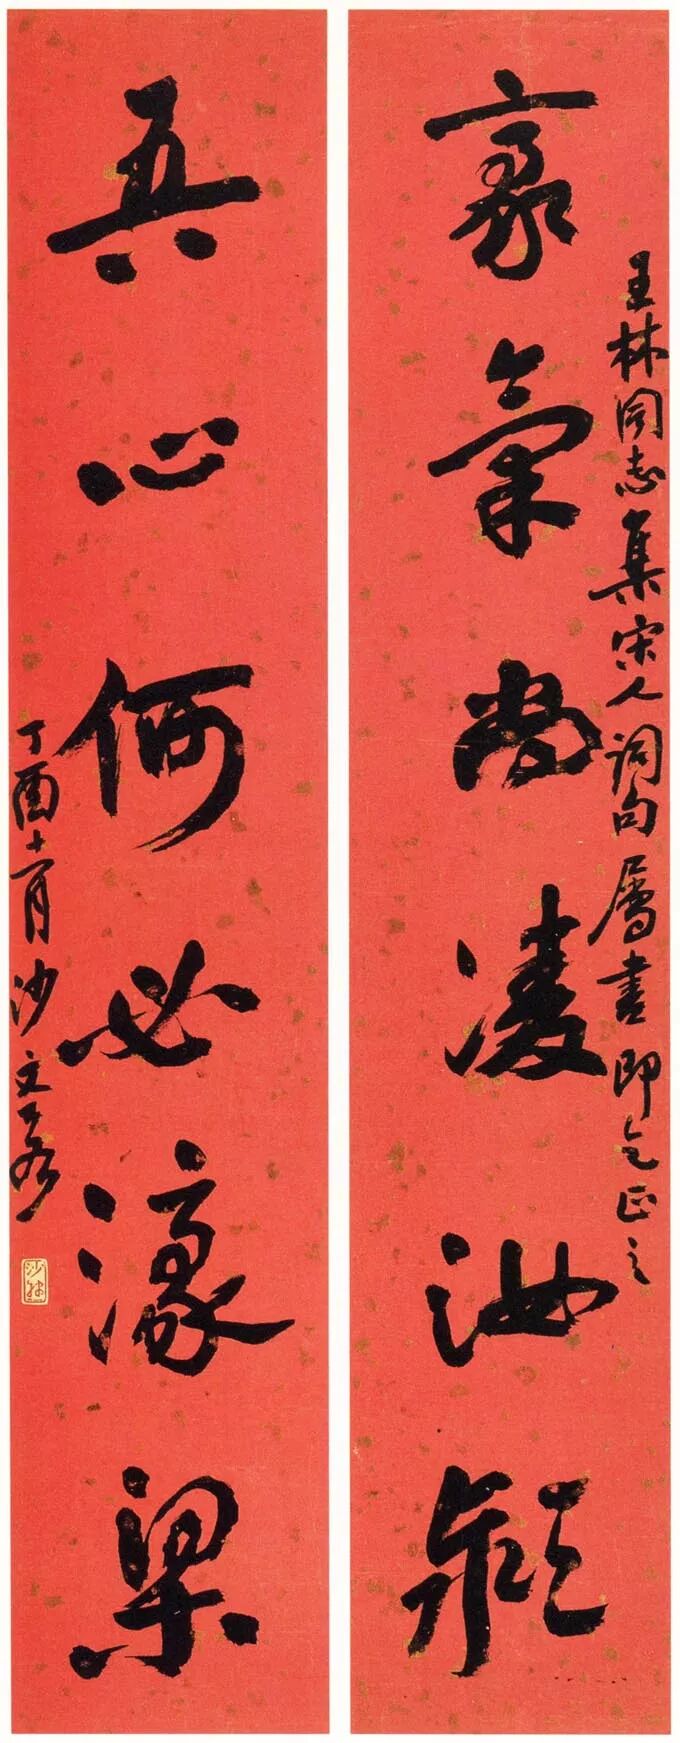 王林同志集宋人詞句屬書即乞正之
豪氣尚凌汝潁
真心何必濠梁
丁酉十一月沙文若